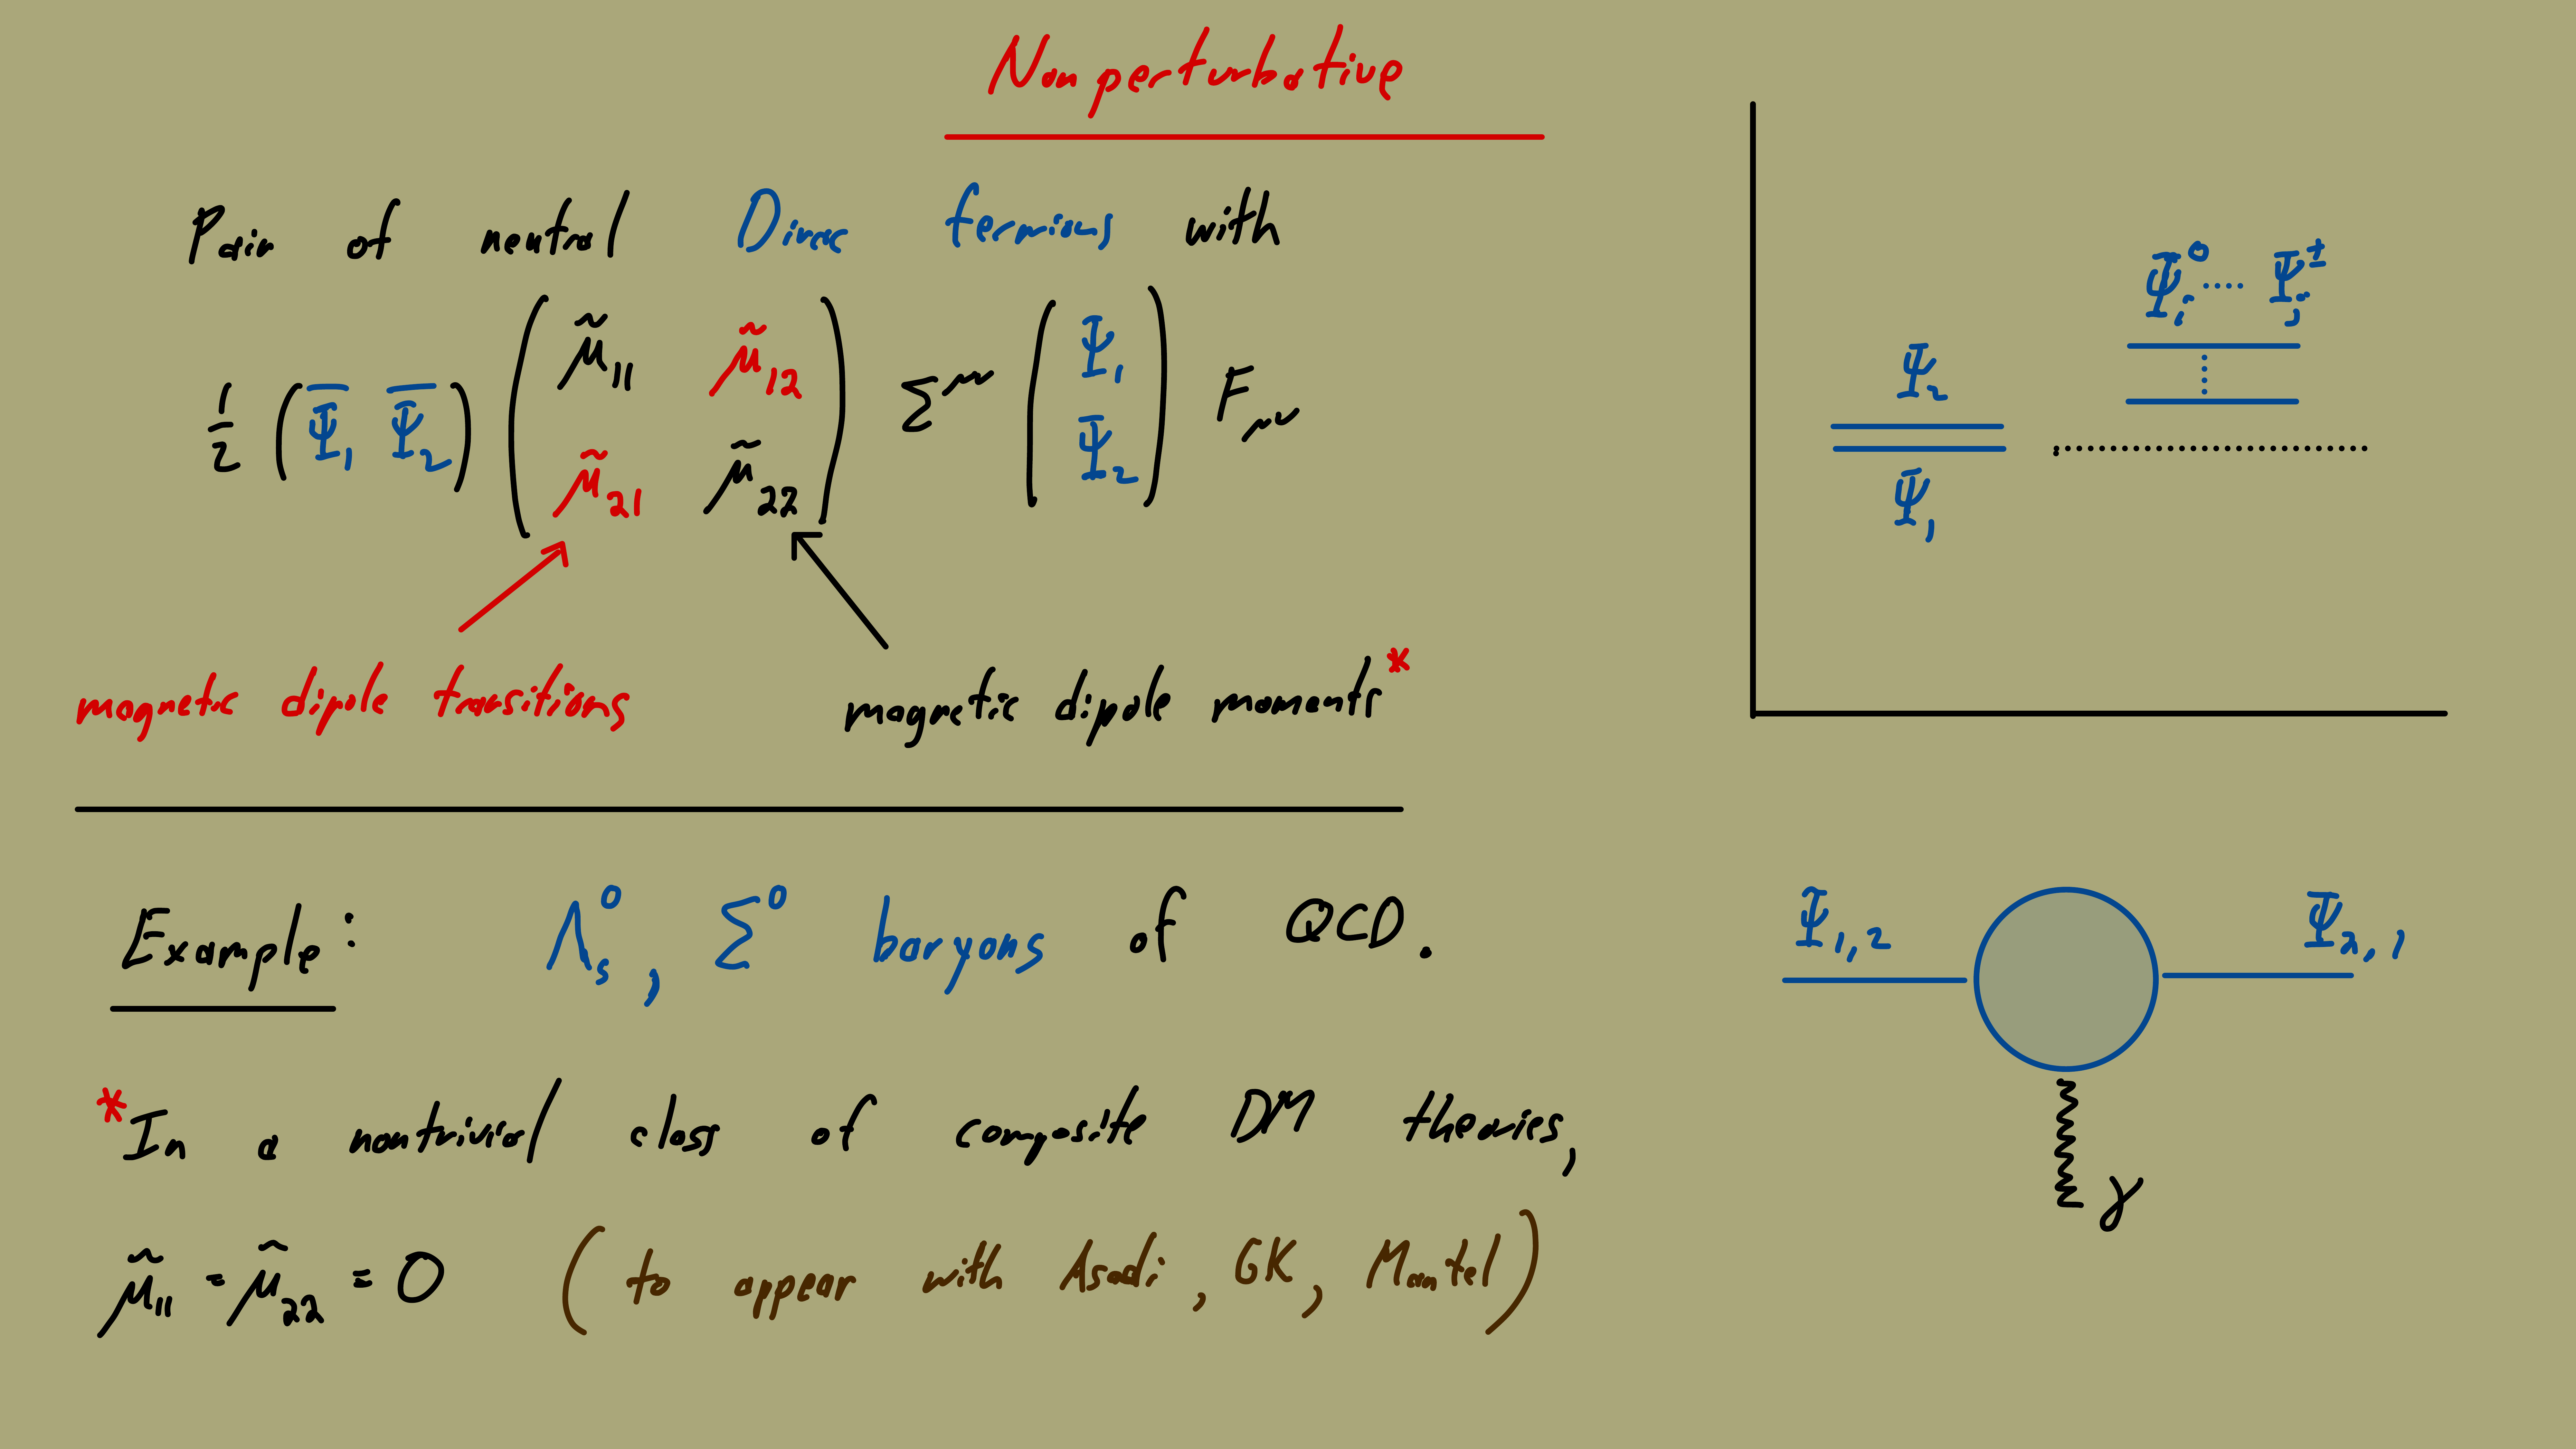 Nonperturbative
Pair of neutral Dirac fermions with
1/2 (Ψ̅₁ Ψ̅₂) ( μ̃₁₁ μ̃₁₂ ; μ̃₂₁ μ̃₂₂ ) Σ^μν ( Ψ₁ ; Ψ₂ ) F_μν
magnetic dipole transitions
magnetic dipole moments*
Ψ₂
Ψ₁
Ψᵢ⁰ ···· Ψⱼ^±
Example: Λₛ⁰, Σ⁰ baryons of QCD.
*In a nontrivial class of composite DM theories,
μ̃₁₁ = μ̃₂₂ = 0 (to appear with Asadi, GK, Mantel)
Ψ₁,₂
Ψ₂,₁
γ